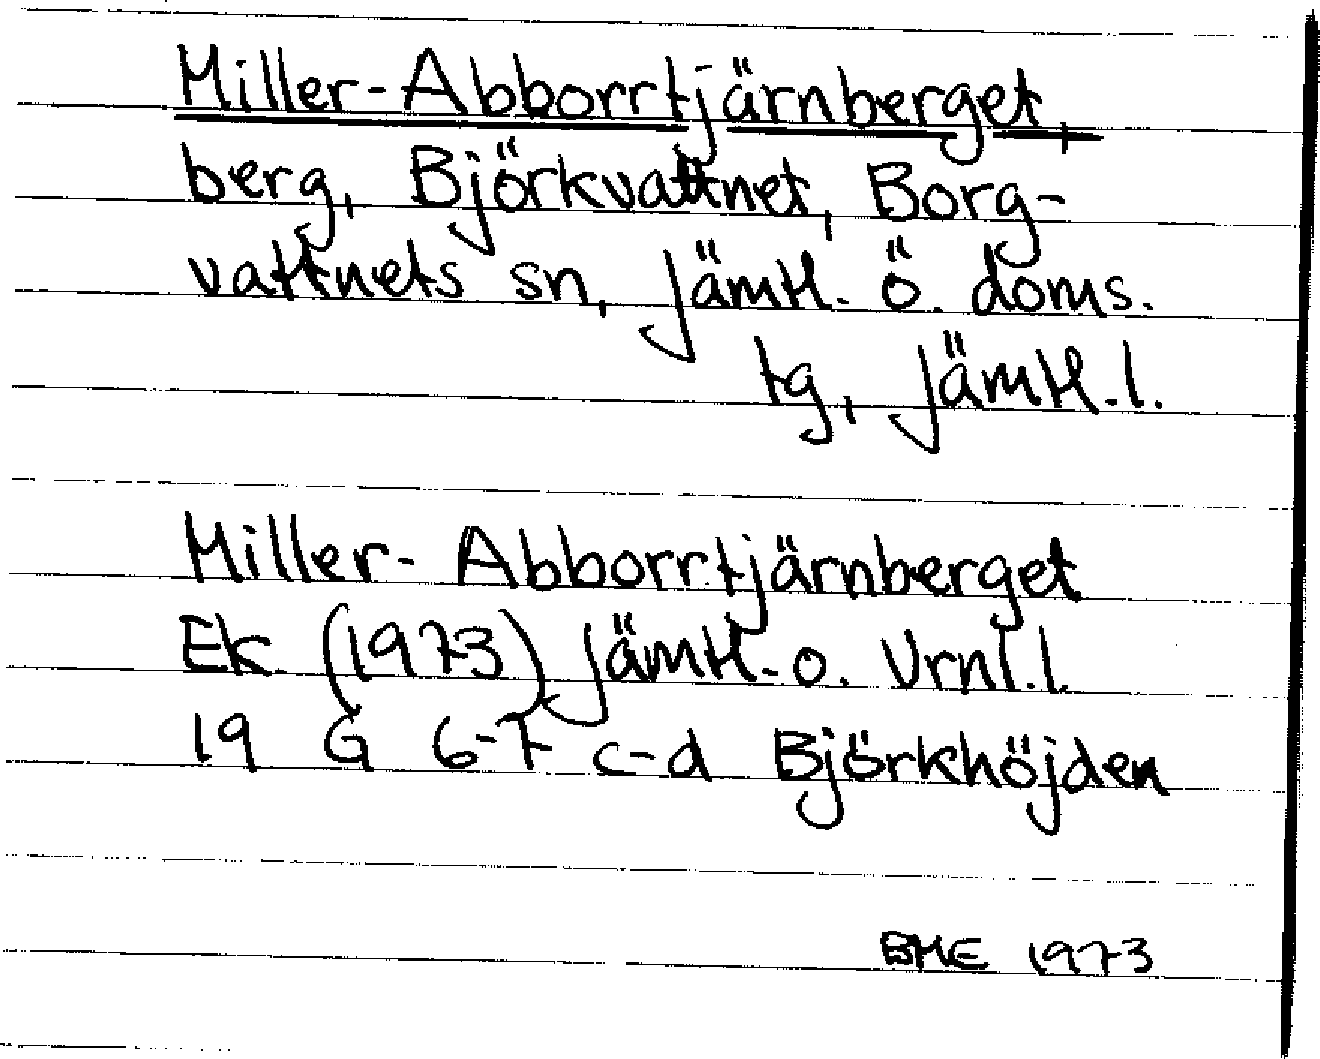 Miller-Abborrtjärnberget,
berg, Björkvattnet, Borg-
vattnets sn, Jämtl. Ö. doms.
tg, Jämtl. l.
Miller- Abborrtjärnberget
Ek (1973) Jämtl. o. Vrml. l.
19 G 6-7 c-d Björkhöjden
BME 1973